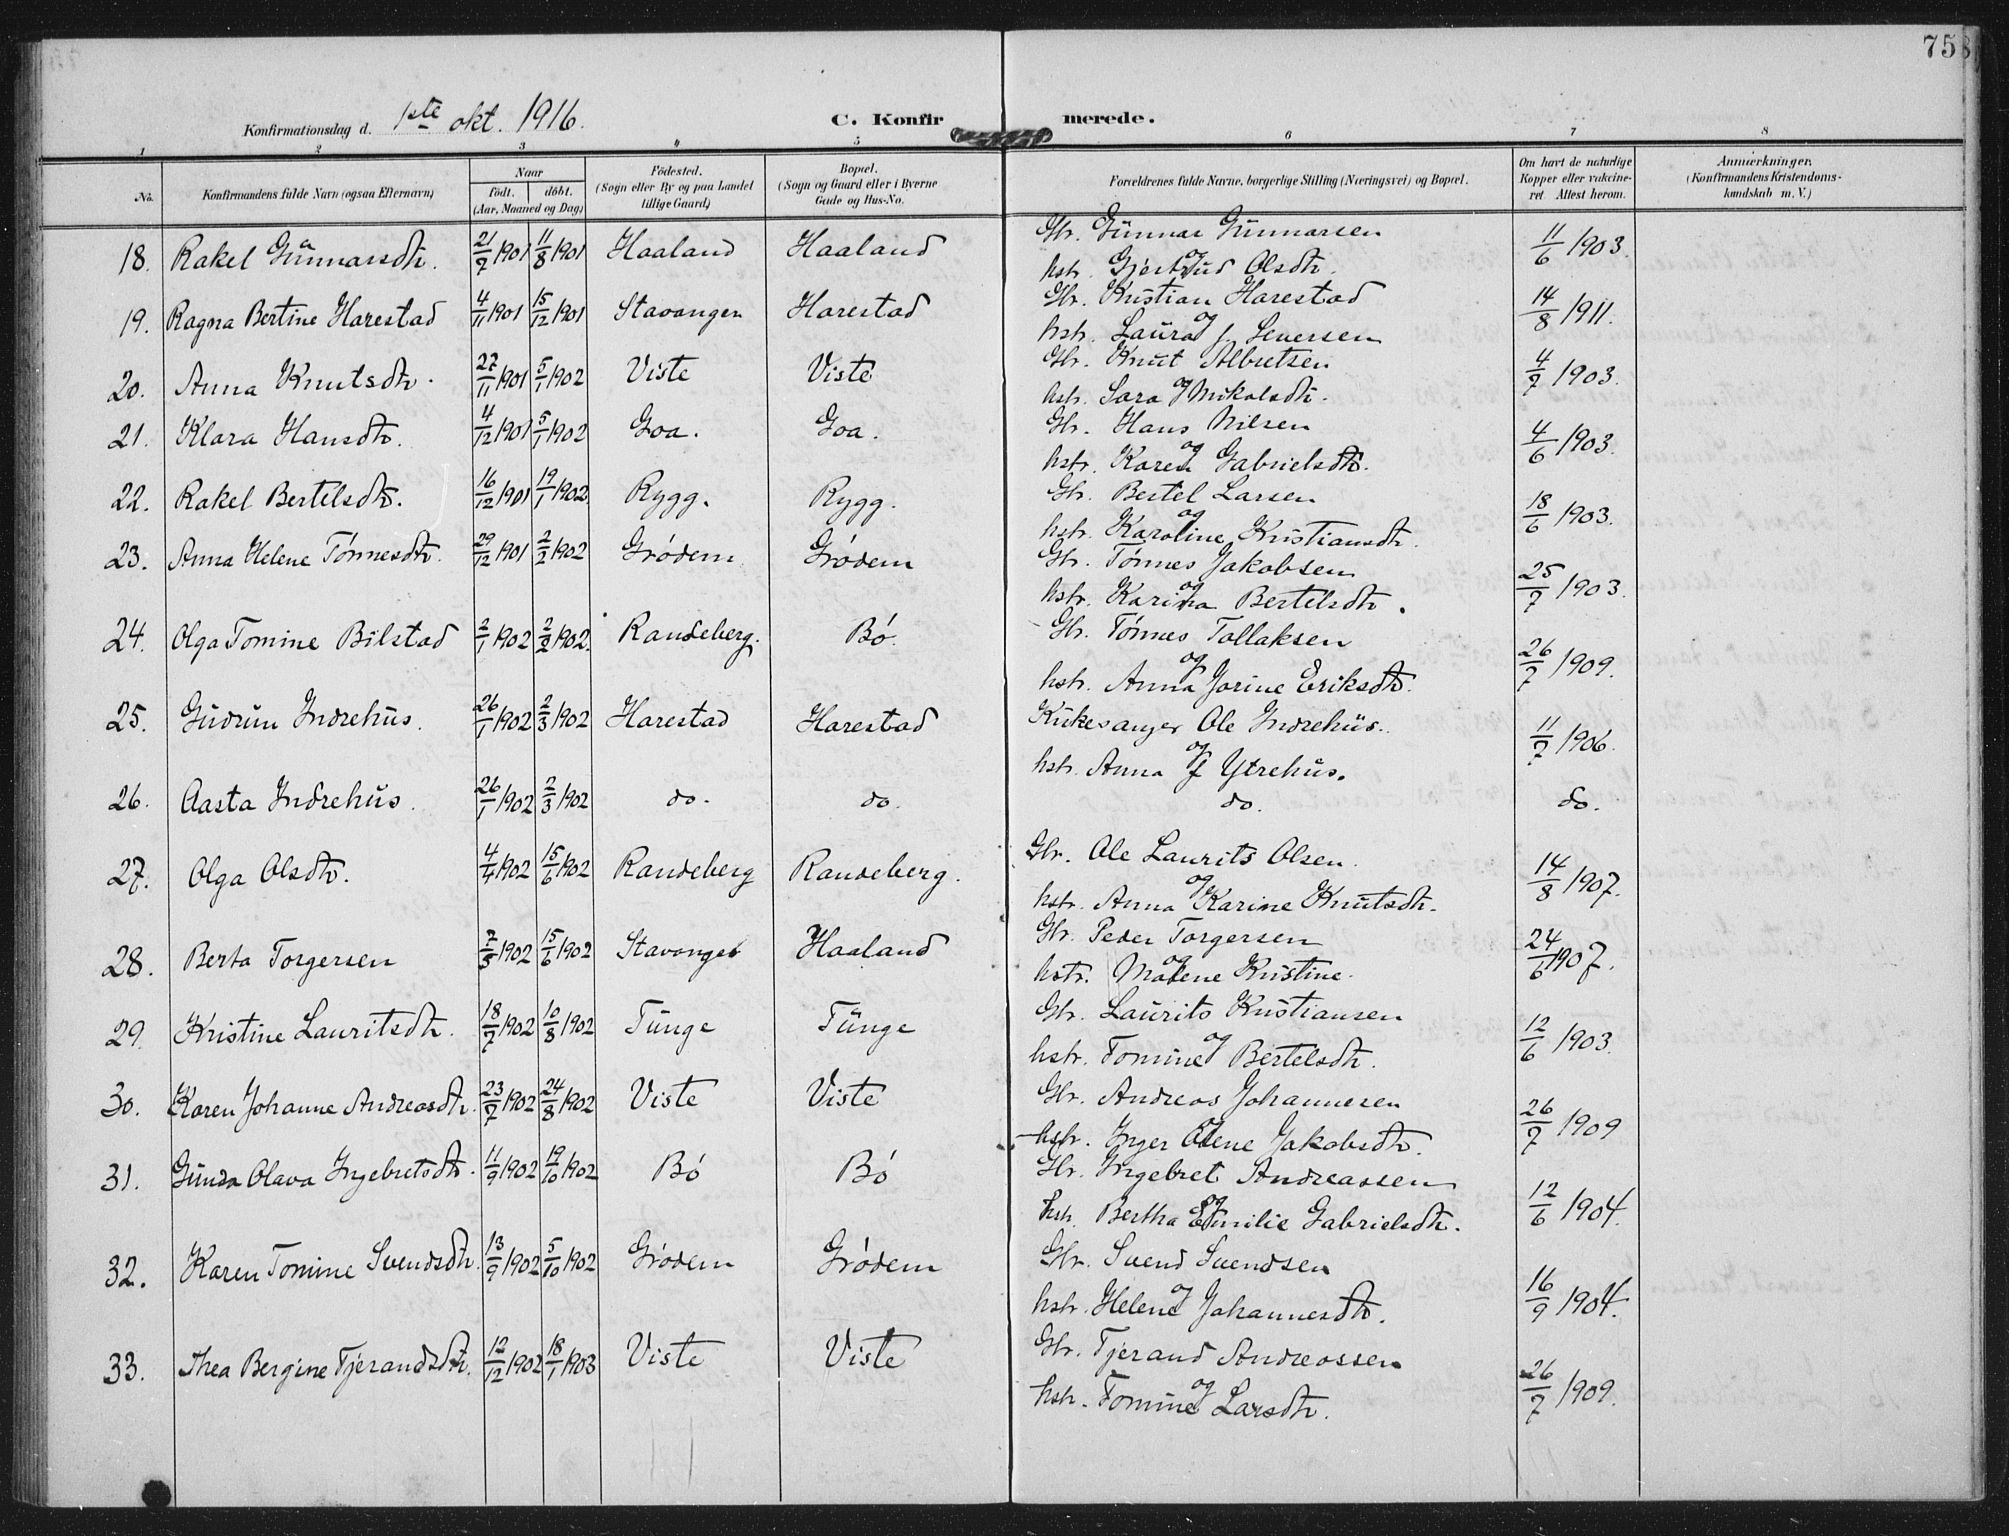 758
Konfirmationsdag d. 1ste okt. 1916.
C. Konfirmerede.
1 2 3 4 5 6 7 8
No. Konfirmandens fulde Navn (ogsaa Efternavn) Naar født. døbt. (Aar, Maaned og Dag) Fødested. (Sogn eller By og paa Landet tillige Gaard) Bopæl. (Sogn og Gaard eller i Byerne Gade og Hus-No. Forældrenes fulde Navne, borgerlige Stilling (Næringsvei) og Bopæl. Om havt de naturlige Kopper eller vakcineret Attest herom. Anmærkninger. (Konfirmandens Kristendomskundskab m. V.)
18. Rakel Gunnarsdtr. 21/7 1901 11/8 1901 Haaland Haaland Gbr. Gunnar Gunnarsen og 11/6 1903.
hstr. Gjertrud Olsdtr.
19. Ragna Bertine Harestad 4/11 1901 15/12 1901 Stavanger Harestad Gbr. Kristian Harestad og 14/8 1911.
hstr. Laura f. Seversen
20. Anna Knutsdtr. 27/11 1901 5/1 1902 Viste Viste Gbr. Knut Albretsen og 4/7 1903.
hstr. Sara Mikalsdtr.
21. Klara Hansdtr. 4/12 1901 5/1 1902 Goa. Goa. Gbr. Hans Nilsen og 4/6 1903.
hstr. Karen Gabrielsdtr.
22. Rakel Bertelsdtr. 16/12 1901 19/1 1902. Rygg. Rygg. Gbr. Bertel Larsen og 18/6 1903.
hstr. Karoline Kristiansdtr.
23. Anna Helene Tønnesdtr. 29/12 1901 2/2 1902 Grødem Grødem Gbr. Tønnes Jakobsen og 25/7 1903.
hstr. Karina Bertelsdtr.
24. Olga Tomine Bilstad 2/1 1902 2/2 1902. Randeberg. Bø. Gbr. Tønnes Tollaksen og 26/7 1909.
hstr. Anna Jorine Eriksdtr.
25. Gudrun Indrehus. 26/1 1902 2/3 1902 Harestad Harestad Kirkesanger Ole Indrehus. og 11/7 1906.
hstr. Anna f Ytrehus.
26. Aasta Indrehus. 26/1 1902 2/3 1902 do. do. do. do.
27. Olga Olsdtr. 4/4 1902 15/6 1902 Randeberg Randeberg. Gbr. Ole Laurits Olsen og 14/8 1907.
hstr. Anna Karine Knutsdtr.
28. Berta Torgersen 7/5 1902 15/6 1902 Stavanger Haaland Gbr. Peder Torgersen og 24/6 1907.
hstr. Malene Kristine.
29. Kristine Lauritsdtr. 18/7 1902 10/8 1902 Tunge Tunge Gbr. Laurits Kristiansen og 12/6 1903.
hstr. Tomine Bertelsdtr.
30. Karen Johanne Andreasdtr. 23/7 1902 24/8 1902 Viste Viste Gbr. Andreas Johannesen og 26/7 1909
hstr. Inger Olene Jakobsdtr.
31. Gunda Olava Ingebretsdtr. 11/9 1902 19/10 1902 Bø Bø Gbr. Ingebret Andreassen og 12/6 1904.
hstr. Bertha Emilie Gabrielsdtr.
32. Karen Tomine Svendsdtr. 13/9 1902 5/10 1902 Grødem Grødem Gbr. Svend Svendsen og 16/9 1904.
hstr. Helene Johannesdtr.
33. Thea Bergine Tjerandsdtr. 12/12 1902 18/1 1903 Viste Viste Gbr. Tjerand Andreassen og 26/7 1909.
hstr. Tomine Larsdtr.